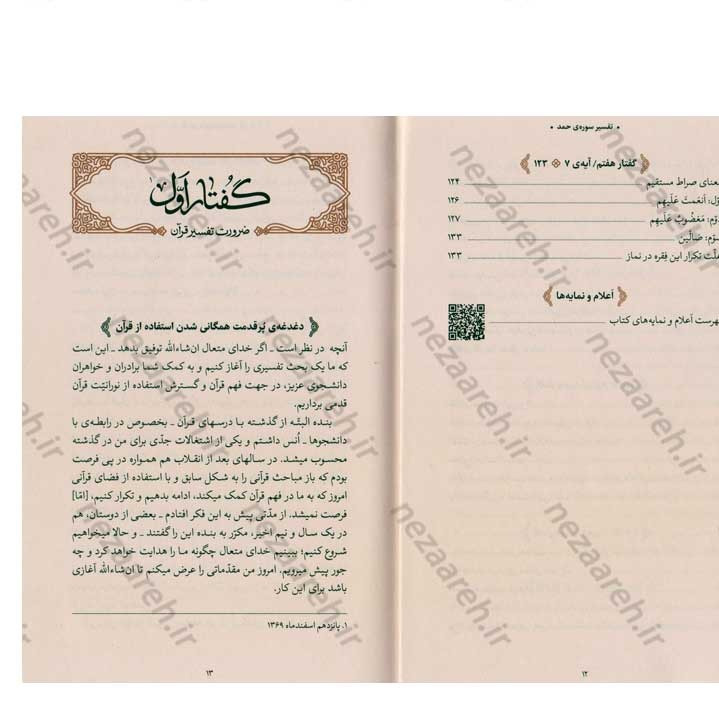 • تفسیر سوره‌ی حمد •
گفتار هفتم/ آیه‌ی ۷ ❖ ۱۲۳
معنای صراط مستقیم ۱۲۴
اوّل: اَنعَمتَ عَلَیهِم ۱۲۶
دوّم: مَغضُوبِ عَلَیهِم ۱۲۷
سوّم: ضالّین ۱۳۳
علّت تکرار این فِقره در نماز ۱۳۳
اَعلام و نمایه‌ها
فهرست اَعلام و نمایه‌های کتاب
۱۲
گفتار اوّل۱
ضرورت تفسیر قرآن
دغدغه‌ی پُرقدمت همگانی شدن استفاده از قرآن
آنچه در نظر است ـ اگر خدای متعال ان‌شاءالله توفیق بدهد ـ این است
که ما یک بحث تفسیری را آغاز کنیم و به کمک شما برادران و خواهران
دانشجوی عزیز، در جهت فهم قرآن و گسترش استفاده از نورانیّت قرآن
قدمی برداریم.
بنده البتّه از گذشته با درسهای قرآن ـ بخصوص در رابطه‌ی با
دانشجوها ـ اُنس داشتم و یکی از اشتغالات جدّی برای من در گذشته
محسوب میشد. در سالهای بعد از انقلاب هم همواره در پی فرصت
بودم که باز مباحث قرآنی را به شکل سابق و با استفاده از فضای قرآنی
امروز که به ما در فهم قرآن کمک میکند، ادامه بدهیم و تکرار کنیم، [امّا]
فرصت نمیشد. از مدّتی پیش به این فکر افتادم ـ بعضی از دوستان، هم
در یک سال و نیم اخیر، مکرّر به بنده این را گفتند ـ و حالا میخواهیم
شروع کنیم؛ ببینیم خدای متعال چگونه ما را هدایت خواهد کرد و چه
جور پیش میرویم. امروز من مقدّماتی را عرض میکنم تا ان‌شاءالله آغازی
باشد برای این کار.
۱. پانزدهم اسفندماه ۱۳۶۹
۱۳
nezaareh.ir